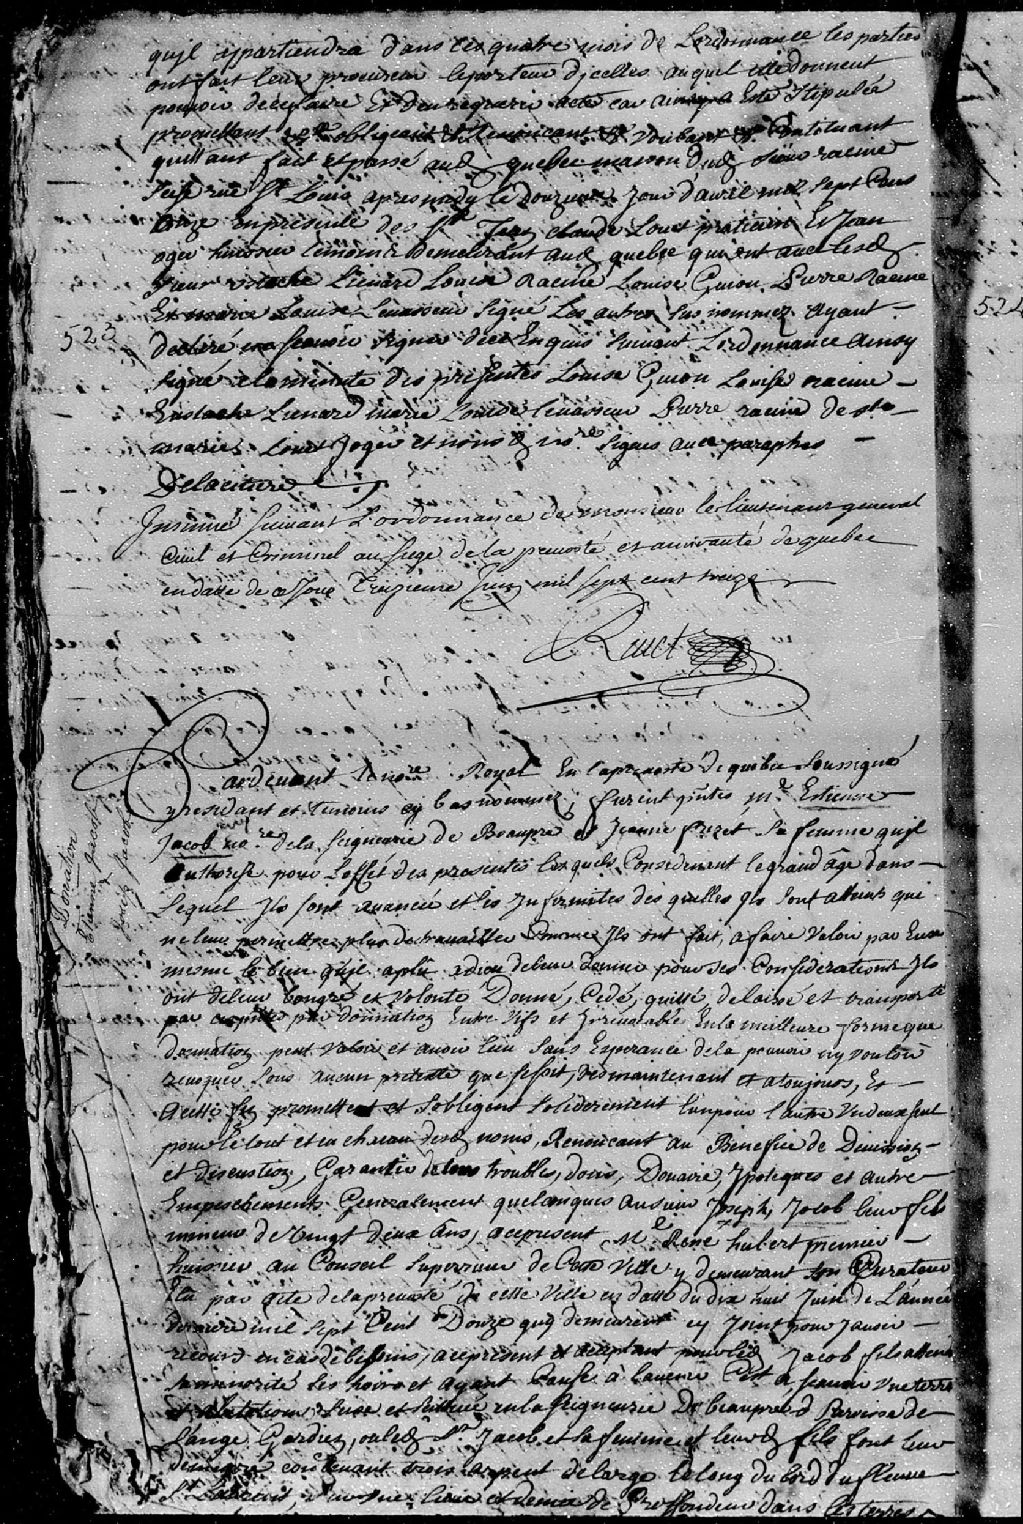 quil appartiendra dans les quatre mois de Lordonnance les parties
ont fait leur procureur le porteur dicelles auquel elle donnent
pouvoir de ce faire Et den requerir acte car ainsy a Esté Stipulée
promettant obligeant Renoncant
quittant fait et passé aud quebec maison dud Sieur racine
Size rue St Louis apres midy le douzieme Jour davril mil Sept Cens
treze En presence des Srs Jean claude Louet praticien Et Jean
oger huissier temoins Demeurant aud quebec qui ont avec lesd
Sieur Eustache Lienard Louise Racine Louise Guion Pierre Racine
Et marie Louise Levasseur Signé Les autres Sus nommez ayant
523
524
déclaré ne scavoir signer de ce Enquis suivant Lordonnance Ainsy
Signé a la minutte des presentes Louise Guion Louise racine
Eustache Lienard marie Louise levasseur Pierre racine de ste
marie Louet Joger et nous d no.re Signes avec paraphes
Delacetiere
Insinué suivant L'ordonnance de monsieur le lieutenant general
Civil et Criminel au siege de la prevosté et amirauté de quebec
en datte de ce Jour Treizieme Juin mil sept cent treize
Rivet
Donation
Etienne Jacob
Joseph Jacob
Pardevant le no.re Royal En la prevosté de quebec Soussigné
y residant et temoins cy bas nommez, furent pntes M.e Estienne
Jacob no.re de la Seigneurie de Beaupré et Jeanne fresct Sa femme quil
authorise pour Leffet des presentes lesquels Considerant le grand âge dans
lequel Ils sont avancée et les Infirmites des quelles Ils sont atteints qui
ne leur permettre plus de travailler Comme Ils ont fait, a faire valoir par Eux
mesme le bien quil a plu a dieu de leur donner pour ses Considerations Ils
ont de leur bongré et volonté Donné, Cedé, quitté, delaissé et transporté
par donnation Entre Vifs et Irrevocable En la meilleure forme que
donnation peut valoir et avoir lieu Sans Esperance de la pouvoir ny vouloir
revoquer Sous aucun pretexte que ce soit, des maintenant et a toujours, Et
promettent et Sobligent Soliderement lun pour l'autre Un deux seul
pour le tout et en chacun desd noms, Renoncant au Benefice de Division
et discution, Garantir de tous troubles, dons, Douaire, Ypoteques et autre
Empeschements Generalement quelconques au sieur Joseph Jacob leur fils
mineur de Vingt deux ans, ace present M.e René hubert premier
huissier au Conseil Superieur de Cette Ville y demeurant Son Curateur
Elu par acte de la prevosté de cette Ville en datte du dix huit Juin de L'année
derniere mil Sept Cent Douze quy demeurent cy Joint pour y avoir
recours en cas de besoins, ace present et acceptant pour led Jacob fils attendu
sa minorité ses hoirs et ayant Cause à lavenir C'est a scavoir une terre
et abitation Size et Scituée en la Seigneurie De beaupré Paroisse de
Lange Gardien, ou led Sr Jacob et sa femme et leurd fils font leur
demeure contenant trois arpent de large le long du bord du fleuve
St Laurent, d'une lieue et demie de Proffondeur dans les terres